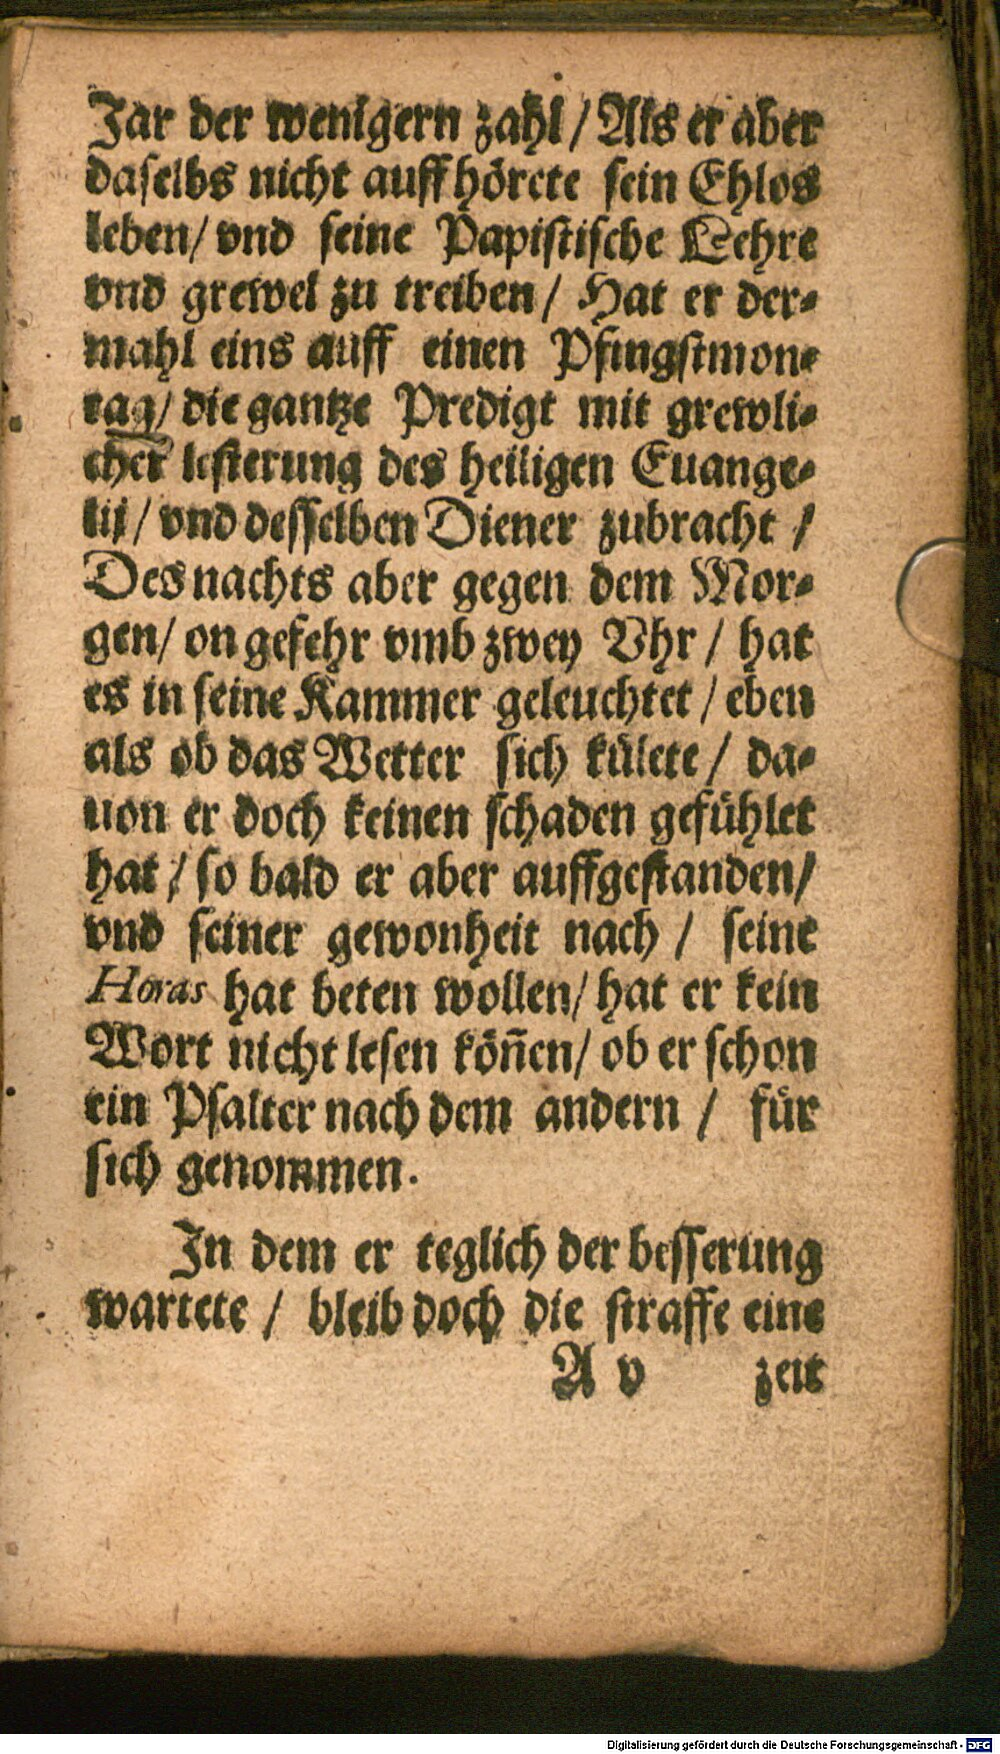 Jar der wenigern zahl / Als er aber
daselbs nicht auff hörete sein Ehlos
leben / vnd seine Papistische Lehre
vnd grewel zu treiben / Hat er der⸗
mahl eins auff einen Pfingstmon⸗
tag / die gantze Predigt mit grewli⸗
cher lesterung des heiligen Euange⸗
lij / vnd desselben Diener zubracht /
Des nachts aber gegen dem Mor⸗
gen / on gefehr vmb zwey Vhr / hat
es in seine Kammer geleuchtet / eben
als ob das Wetter sich külete / da⸗
uon er doch keinen schaden gefühlet
hat / so bald er aber auffgestanden /
vnd seiner gewonheit nach / seine
Horas hat beten wollen / hat er kein
Wort nicht lesen kön̄en / ob er schon
ein Psalter nach dem andern / für
sich genommen.
In dem er teglich der besserung
wartete / bleib doch die straffe eine
A v zeit
Digitalisierung gefördert durch die Deutsche Forschungsgemeinschaft - DFG